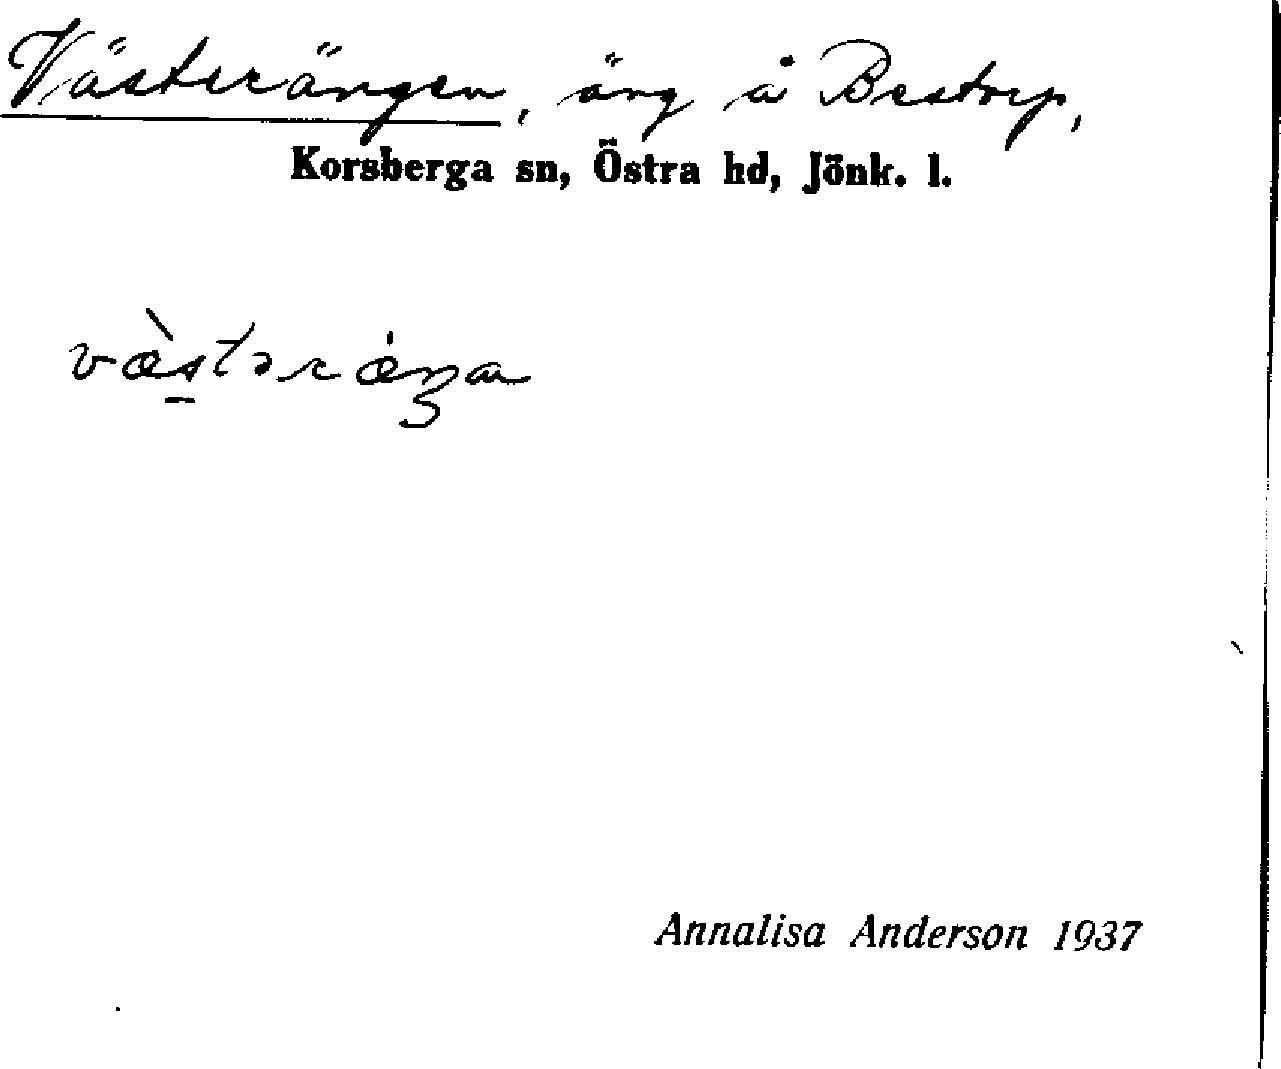 Västerängen, äng å Bestorp,
Korsberga sn, Östra hd, Jönk. l.
væ̀stərǽŋa
Annalisa Anderson 1937